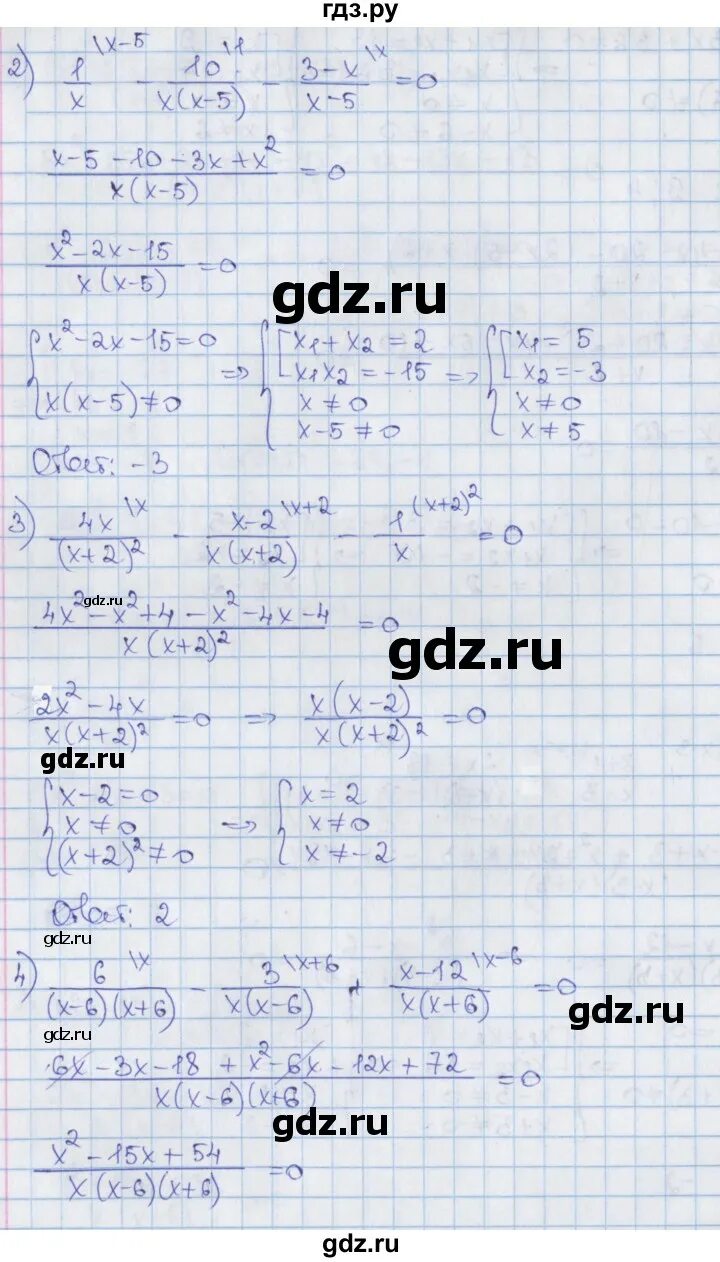 гдз.ру
2) 1/x \x-5 - 10/x(x-5) \1 - 3-x/x-5 \x =0
x-5-10-3x+x²/x(x-5) =0
x²-2x-15/x(x-5) =0
gdz.ru
{x²-2x-15=0 x(x-5)≠0 => {[x₁+x₂=2 x₁x₂=-15 x≠0 x-5≠0 => {[x₁=5 x₂=-3 x≠0 x≠5
Ответ: -3
3) 4x/(x+2)² \x - x-2/x(x+2) \x+2 - 1/x (x+2)² =0
gdz.ru
4x²-x²+4-x²-4x-4/x(x+2)² =0
gdz.ru
2x²-4x/x(x+2)² =0 => x(x-2)/x(x+2)² =0
gdz.ru
{x-2=0 x≠0 (x+2)²≠0 => {x=2 x≠0 x≠-2
Ответ: 2
gdz.ru
4) 6/(x-6)(x+6) \x - 3/x(x-6) \x+6 + x-12/x(x+6) \x-6 =0
gdz.ru
gdz.ru
6x-3x-18+x²-6x-12x+72/x(x-6)(x+6) =0
gdz.ru
x²-15x+54/x(x-6)(x+6) =0
gdz.ru